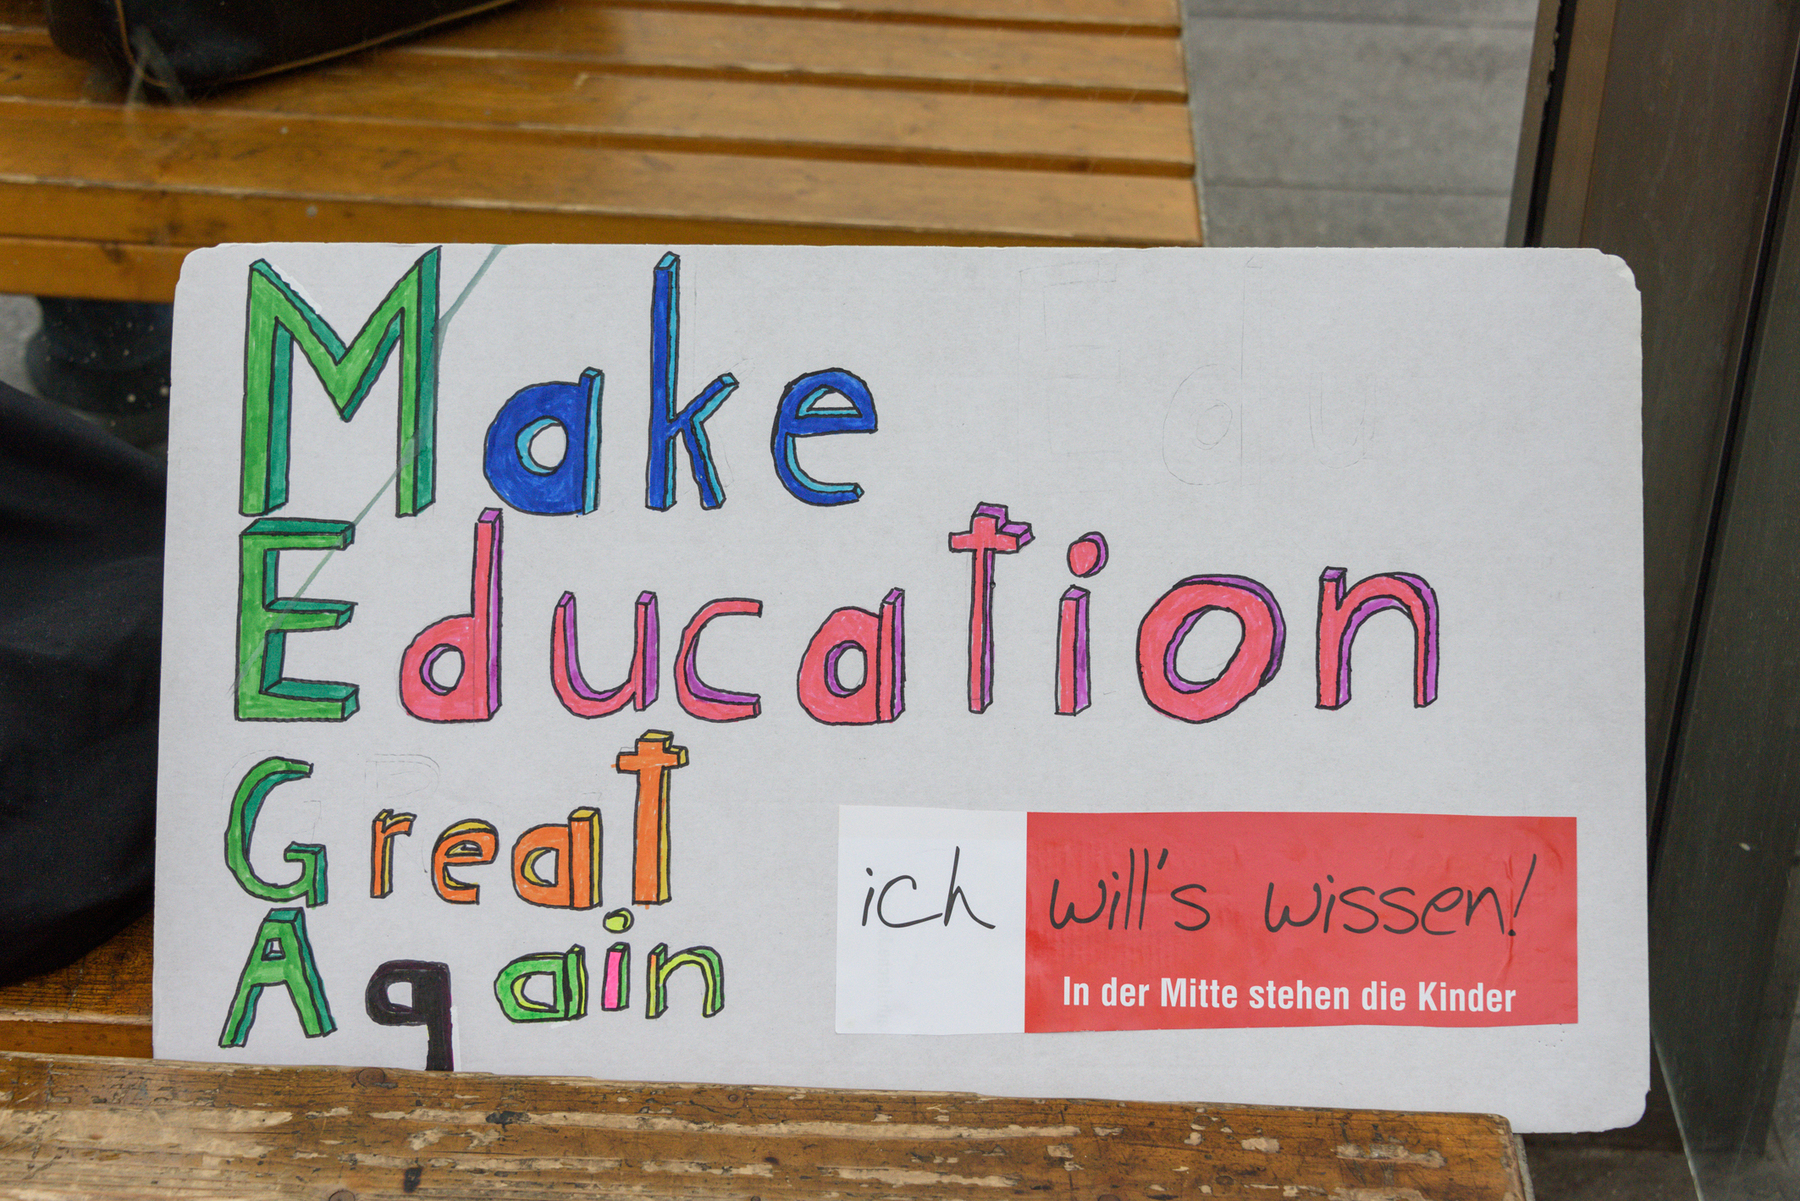 Make
Education
Great
Again
ich will's wissen!
In der Mitte stehen die Kinder